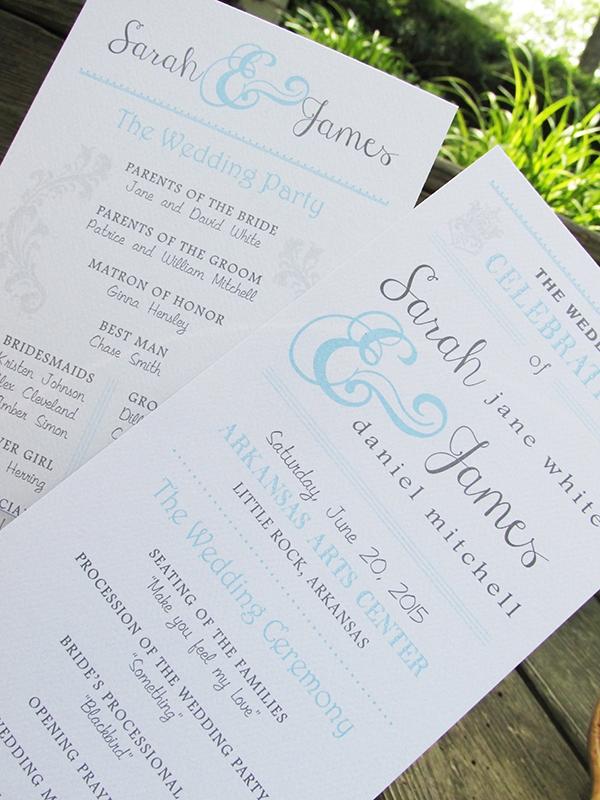 Sarah & James
The Wedding Party
PARENTS OF THE BRIDE
Jane and David White
PARENTS OF THE GROOM
Patrice and William Mitchell
MATRON OF HONOR
Ginna Hensley
BEST MAN
Chase Smith
BRIDESMAIDS
Kristen Johnson
Cleveland
Amber Simon
GIRL
Herring
THE
of
Sarah jane white
&
James daniel mitchell
Saturday, June 20, 2015
ARKANSAS ARTS CENTER
LITTLE ROCK, ARKANSAS
The Wedding Ceremony
SEATING OF THE FAMILIES
"Make you feel my Love"
PROCESSION OF THE WEDDING PARTY
"Something"
BRIDE'S PROCESSIONAL
"Blackbird"
OPENING